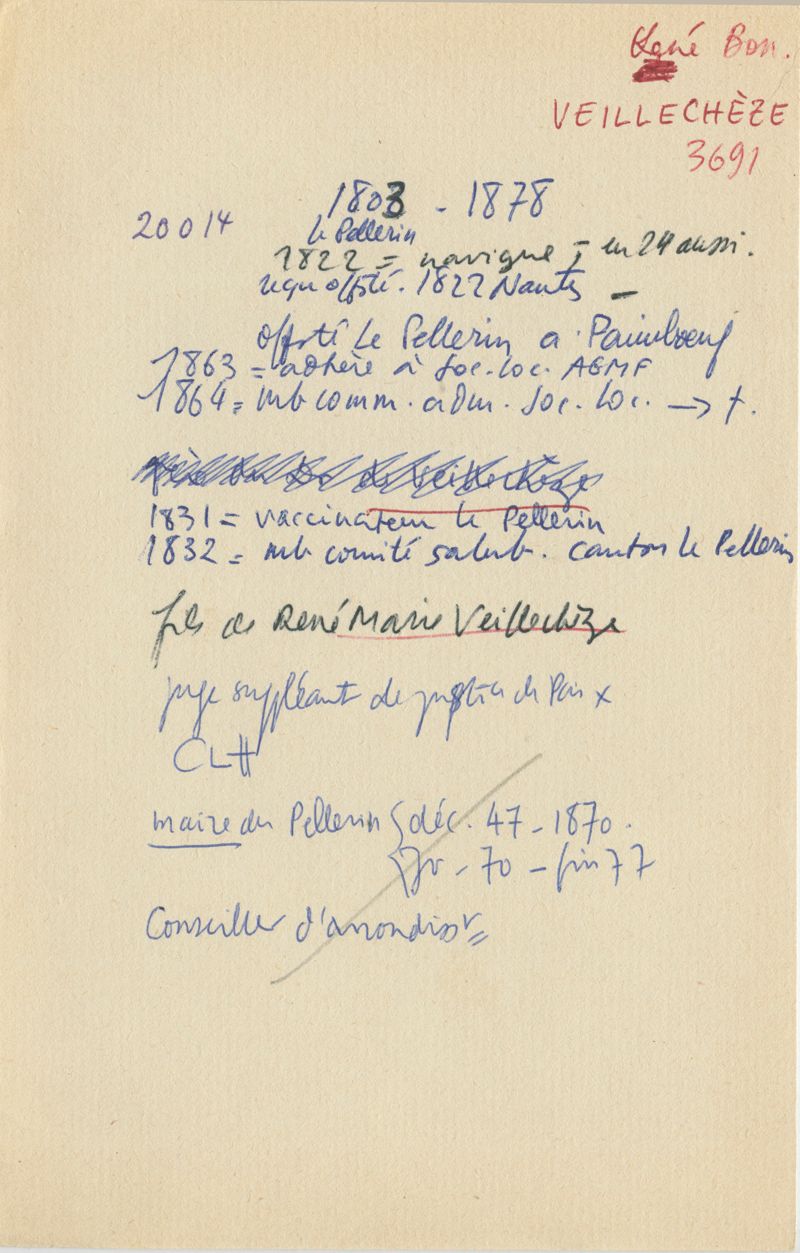 René Bon.
VEILLECHÈZE
3691
20014
1803 - 1878
le Pellerin
1822 = navigue - en 24 aussi.
reçu off. té. 1822 Nantes -
off. té Le Pellerin a Paimboeuf
1863 = adhère à Soc. loc. AGMF
1864 = mb comm. adm. Soc. loc. → †.
1831 = vaccinateur le Pellerin
1832 = mb comité salub. canton le Pellerin
fils de René Marie Veillechèze
juge suppléant de justice de Paix x
CLH
maire du Pellerin { déc. 47 - 1870.
{ - 70 - fin 77
Conseiller d'arrondisst